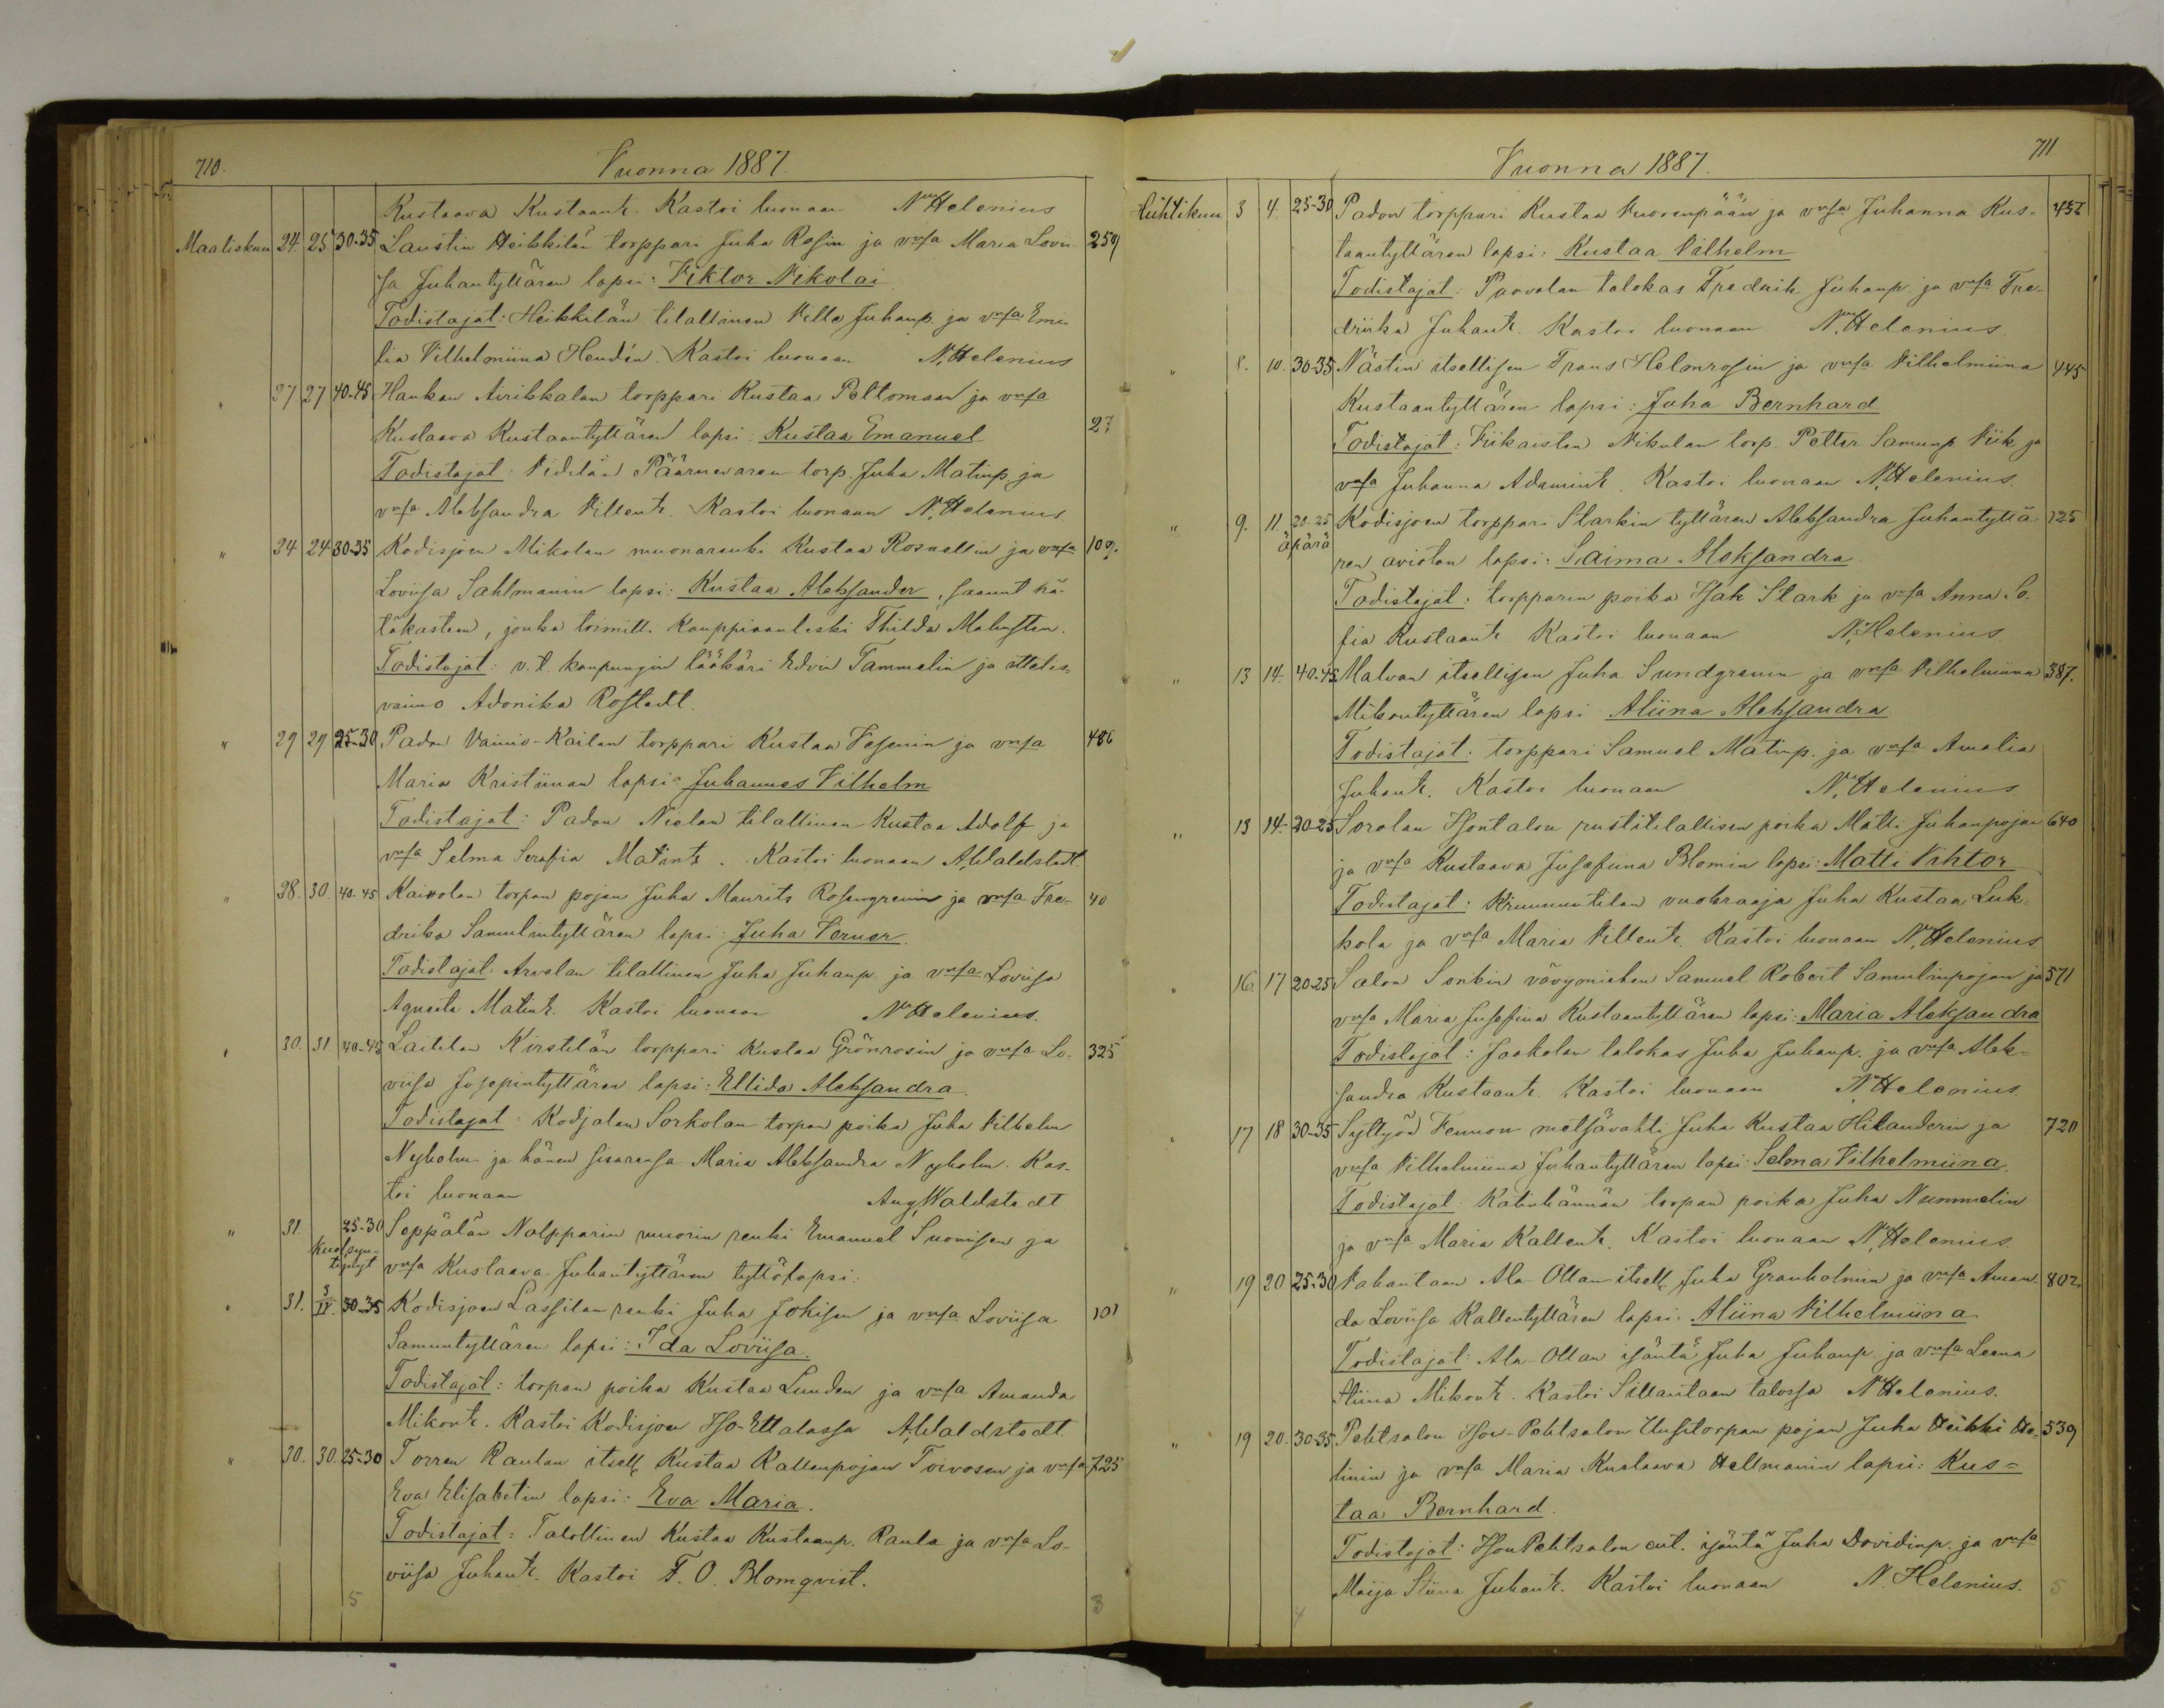 710.
Vuonna 1887.
Kustaava Kustaant. Kastoi luonaan N. Helenius
Maaliskuu 24 25 30-35 Laustin Heikkilän torppari Juha Rosin ja vmsa Maria Lovi- 259
sa Juhantyttären lapsi: Viktor Nikolai
Todistajat: Heikkilän tilallinen Ville Juhanp. ja vmsa Emi-
lia Vilhelmiina Hendén. Kastoi luonaan N. Helenius
" 27 27 40-45 Haukan Airikkalan torppari Kustaa Peltomaan ja vmsa
Kustaava Kustaantyttären lapsi: Kustaa Emanuel 27
Todistajat: Vidilän Päärnewaran torp. Juha Matinp. ja
vmsa Aleksandra Villent. Kastoi luonaan N. Helenius
" 24 24 30-35 Kodisjoen Mikolan muonarenki Kustaa Rosnellin ja vmsa 109.
Loviisa Sahlmanin lapsi: Kustaa Aleksander, saanut hä-
täkasteen, jonka toimitti kauppiaanleski Thilda Malmsten.
Todistajat: v.t. kaupungin lääkäri Edvin Tammelin ja ottelis-
vaimo Adonika Rostedt.
" 29 29 25-30 Padon Vainio-Kailan torppari Kustaa Vesenin ja vmsa 486
Maria Kristiinan lapsi: Juhannes Vilhelm
Todistajat: Padon Nielan tilallinen Kustaa Adolf ja
vmsa Selma Serafia Matint. Kastoi luonaan A. Waldstedt
" 28. 30. 40-45 Kaivolan torpan pojan Juha Maurits Rosengrenin ja vmsa Fre- 40
drika Samulintyttären lapsi: Juha Verner.
Todistajat: Arvolan tilallinen Juha Juhanp. ja vmsa Loviisa
Agneeta Matint. Kastoi luonaan N. Helenius.
" 30. 31 40-45 Laitilan Kirstilän torppari Kustaa Grönrosin ja vmsa Lo- 325
viisa Josepintyttären lapsi: Ellida Aleksandra
Todistajat: Kodjalan Sorkolan torpan poika Juha Vilhelm
Nyholm ja hänen sisarensa Maria Aleksandra Nyholm. Kas-
toi luonaan Aug. Waldstedt
" 31 25-30 Seppälän Nalpparin nuorin renki Emanuel Suomisen ja
Kuol. syn-
tynyt vmsa Kustaava Juhantyttären tyttölapsi.
" 31. 3/IV. 30-35 Kodisjoen Lassilan renki Juha Jokisen ja vmsa Loviisa 101
Samuntyttären lapsi: Ida Loviisa.
Todistajat: torpan poika Kustaa Lunden ja vmsa Amanda
Mikont. Kastoi Kodisjoen Iso-Ettalassa A. Waldstedt
" 30. 30. 25-30 Torren Raulan itsell. Kustaa Kallenpojan Toivosen ja vmsa 725
Eva Elisabetin lapsi: Eva Maria.
Todistajat: Talollinen Kustaa Kustaanp. Raula ja vmsa Lo-
viisa Juhant. Kastoi F. O. Blomqvist.
5 3
711
Vuonna 1887.
Huhtikuu 3 4. 25-30 Padon torppari Kustaa Vuorenpään ja vmsa Juhanna Kus- 452
taantyttären lapsi: Kustaa Vilhelm
Todistajat: Paavolan talokas Fredrik Juhanp. ja vmsa Fre-
driika Juhant. Kastoi luonaan N. Helenius
" 8. 10. 30-35 Nästin itsellisen Frans Helmrosin ja vmsa Vilhelmiina 445
Kustaantyttären lapsi: Juha Bernhard
Todistajat: Viikaisten Nikulan torp. Petter Samunp. Viik ja
vmsa Juhanna Adamint. Kastoi luonaan N. Helenius.
" 9. 11. 20-25 Kodisjoen torppari Starkin tyttären Aleksandra Juhantyttä- 125
äpärä ren avioton lapsi: Saima Aleksandra
Todistajat: torpparin poika Isak Stark ja vmsa Anna So-
fia Kustaant. Kastoi luonaan N. Helenius.
" 13 14. 40-45 Malvan itsellisen Juha Sundgrenin ja vmsa Vilhelmiina 387.
Mikontyttären lapsi Aliina Aleksandra
Todistajat: torppari Samuel Matinp. ja vmsa Amalia
Juhant. Kastoi luonaan N. Helenius
" 13 14. 20-25 Sorolan Isontalon rustitilallisen poika Matti Juhanpojan 640
ja vmsa Kustaava Josefiina Blomin lapsi: Matti Vihtor
Todistajat: Kruununtilan vuokraaja Juha Kustaa Luk-
kola ja vmsa Maria Villent. Kastoi luonaan N. Helenius
" 16. 17 20-25 Salon Sonkin vävymiehen Samuel Robert Samulinpojan ja 571
vmsa Maria Josefina Kustaantyttären lapsi: Maria Aleksandra
Todistajat: Jaakolan talokas Juha Juhanp. ja vmsa Alek-
sandra Kustaant. Kastoi luonaan N. Helenius.
" 17 18 30-35 Syttyön Vennon metsävahti Juha Kustaa Hilanderin ja 720
vmsa Vilhelmiina Juhantyttären lapsi: Selma Vilhelmiina.
Todistajat: Katinhännän torpan poika Juha Nummelin
ja vmsa Maria Kallent. Kastoi luonaan N. Helenius
" 19 20 25-30 Vahantaan Ala-Ollan itsell. Juha Granholmin ja vmsa Aman- 802.
da Loviisa Kallentyttären lapsi: Aliina Vilhelmiina
Todistajat: Ala-Ollan isäntä Juha Juhanp. ja vmsa Leena
Stiina Mikont. Kastoi Sillantaan talossa N. Helenius.
" 19 20. 30-35 Pehtsalon Ison-Pehtsalon Uusitorpan pojan Juha Heikki He- 539
linin ja vmsa Maria Kustaava Hellmanin lapsi: Kus-
taa Bernhard.
Todistajat: Ison Pehtsalon ent. isäntä Juha Davidinp. ja vmsa
Maija Stiina Juhant. Kastoi luonaan N. Helenius.
4 5